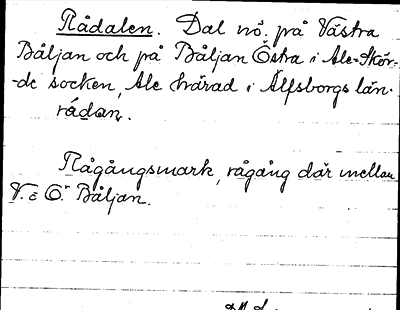 Rådalen. Dal nö. på Västra
Båljan och på Båljan Östra i Ale-Skör-
-de socken, Ale härad i Älfsborgs län.
rádaɳ.
Rågångsmark, rågång där mellan
V. & Ö. Båljan.